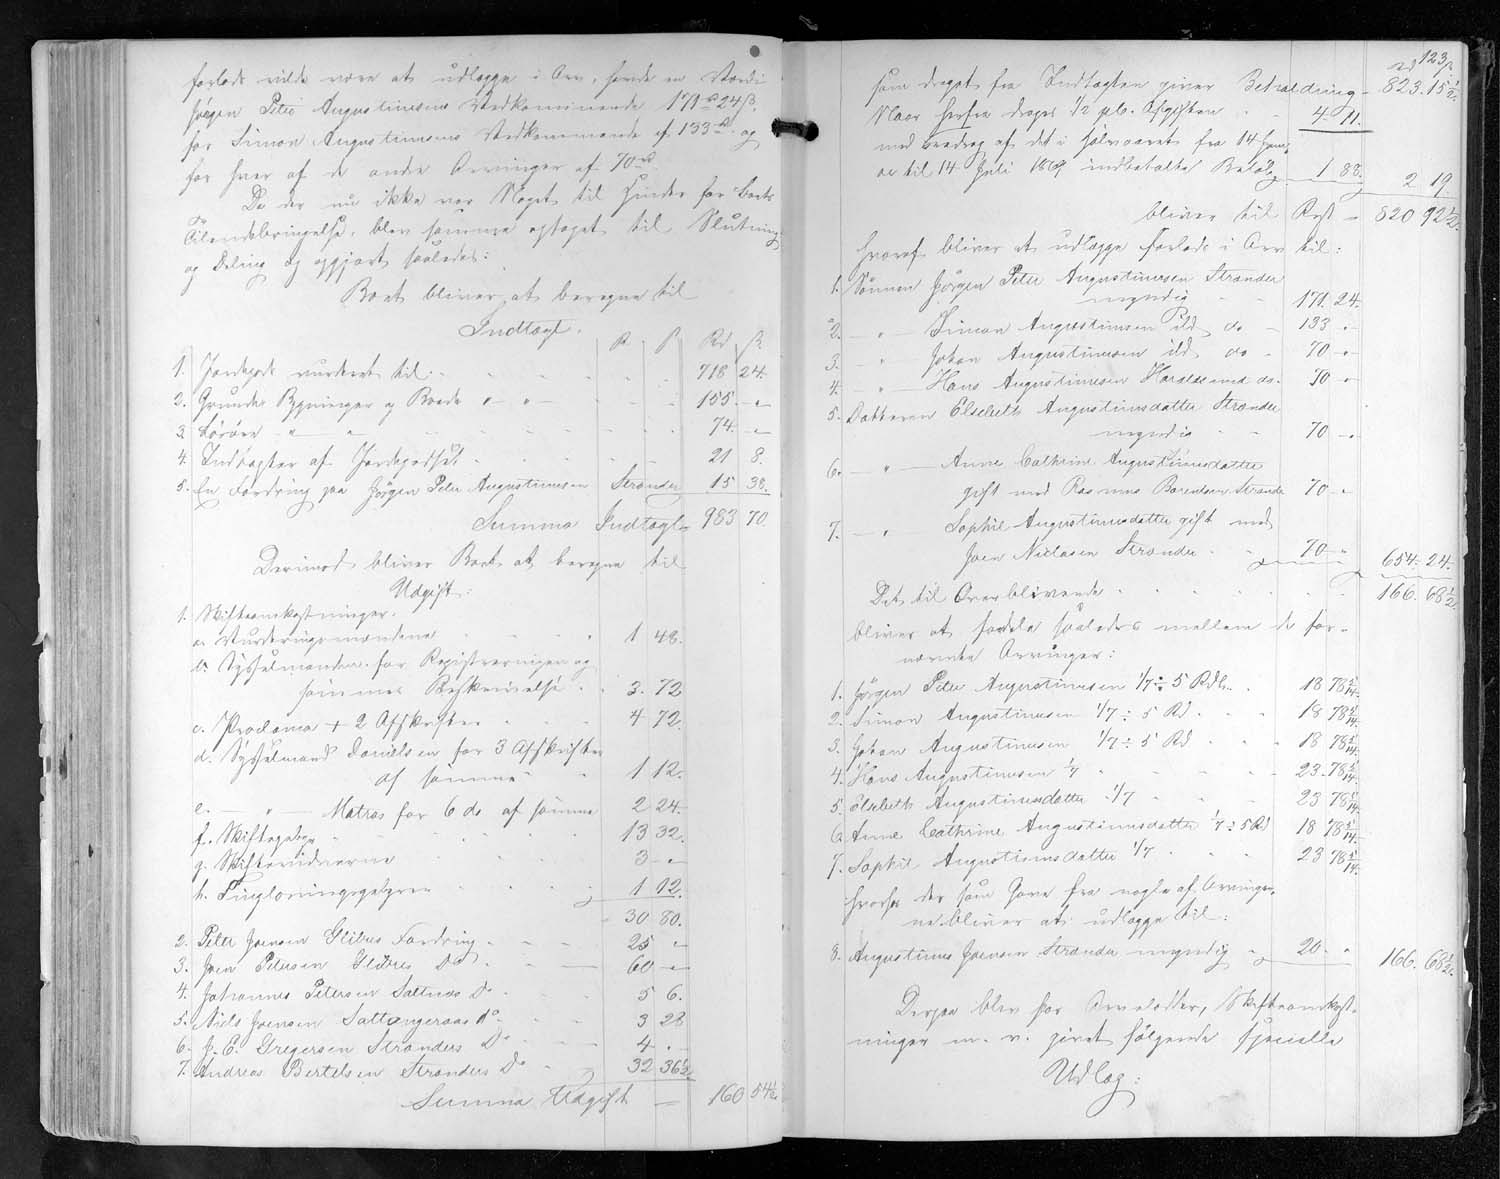 forlods vilde være at udlægge i Arv, havde en Værdi
Jørgen Peter Augustinusens Vedkommende 171 rd 24 β.
for Simon Augustinusens Vedkommende af 133 rd og
for hver af de andre Arvinger af 70 rd
Da der nu ikke var Noget til Hinder for Boets
Tilendebringelse, blev samme optaget til Slutning
og Deling og opgjort saaledes:
Boet bliver at beregne til
Indtægt.
R β Rd β
1. Jordegods vurderet til 718 24.
2. Grunde, Bygninger og Boede " " 155 "
3. Løsøre " " 74. "
4. Indtægter af Jordegodset 21 8.
5. En Fordring paa Jörgen Peter Augustinusen Strænder 15 38.
Summa Indtægt 983 70.
Derimod bliver Boet at beregne til
Udgift:
1. Skifteomkostninger.
a. Vurderingsmændene 1 48.
b. Sysselmanden for Registreringen og
sammes Beskrivelse 3. 72
c. Proclama + 2 Afskrifter 4 72.
d. Sysselmand Danielsen for 3 Afskrifter
af samme 1 12.
e. " Matras for 6 do af samme 2 24.
f. Skiftegebyr 13 32.
g. Skiftevidnerne 3 "
h. Tinglæsningsgebyr 1 12.
30 80.
2. Peter Joensen Glibres Fordring 25 "
3. Joen Petersen Glibres Do 60 "
4. Johannes Petersen Saltnæs Do 5 6.
5. Niels Joensen Saltangeraas Do 3 28
6. J. E. Gregersen Strænders Do 4 "
7. Andreas Bertelsen Strænders Do 32 36½
Summa Udgift 160 54½
123
rd β
som draget fra Indtægten giver Beholdning 823. 15½.
Naar herfra drages ½ pCt. Afgiften 4. 11.
med Fradrag af det i Halvaaret fra 14 Janu-
ar til 14 Juli 1869 indbetalte Beløb 1 88. 2 19.
bliver til Rest 820 92½.
hvoraf bliver at udlægge forlods i Arv til:
1. Sønnen Jörgen Peter Augustinusen Strænder
myndig 171. 24.
2. " Simon Augustinusen ibd do 133 "
3. " Johan Augustinusen ibd do 70 "
4. " Hans Augustinusen Haraldsund do. 70 "
5. Datteren Elsebeth Augustinusdatter Strænder
myndig 70 "
6. " Anne Cathrine Augustinusdatter
gift med Rasmus Barentsen Strænder 70 "
7. " Sophie Augustinusdatter gift med
Joen Niclasen Strænder 70 " 654. 24.
Det til Overblivende 166. 68½.
bliver at fordele saaledes mellem de for-
nævnte Arvinger:
1. Jörgen Peter Augustinusen 1/7 ÷ 5 Rdl. 18 78 5/14.
2. Simon Augustinusen 1/7 ÷ 5 Rd 18 78 5/14.
3. Johan Augustinusen 1/7 ÷ 5 Rd 18 78 5/14.
4. Hans Augustinusen 1/7 23. 78 5/14.
5. Elsebeth Augustinusdatter 1/7 23 78 5/14.
6. Anne Cathrine Augustinusdatter 1/7 ÷ 5 Rd 18 78 5/14.
7. Sophie Augustinusdatter 1/7 23 78 5/14.
hvorhos der som Gave fra nogle af Arvinger-
ne bliver at udlægge til:
8. Augustinus Joensen Strænder myndig 20. " 166. 68½.
Derpaa blev for Arvelodder, Skifteomkost-
ninger m. v. givet følgende specielle
Udlæg: